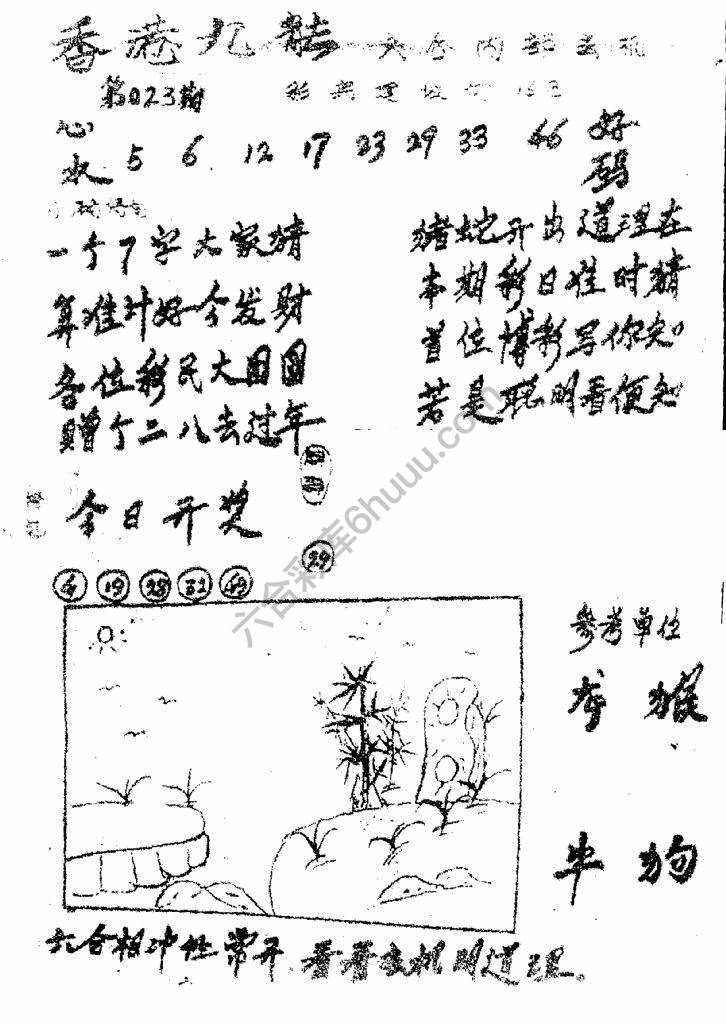 香港九龙 六合内部玄机
第023期
心水 5 6 12 17 23 29 33 46 好码
一个7字大家猜
算准计好今发财
各位彩民大团圆
赠个二八去过年
猪蛇开出道理在
本期彩日准时猜
首位博彩写你知
若是聪明看便知
今日开奖
29
19 28 31
参考单位
龙 猴
牛 狗
六合相冲性常开 看看玄机明道理。
六合彩库6huuu.com